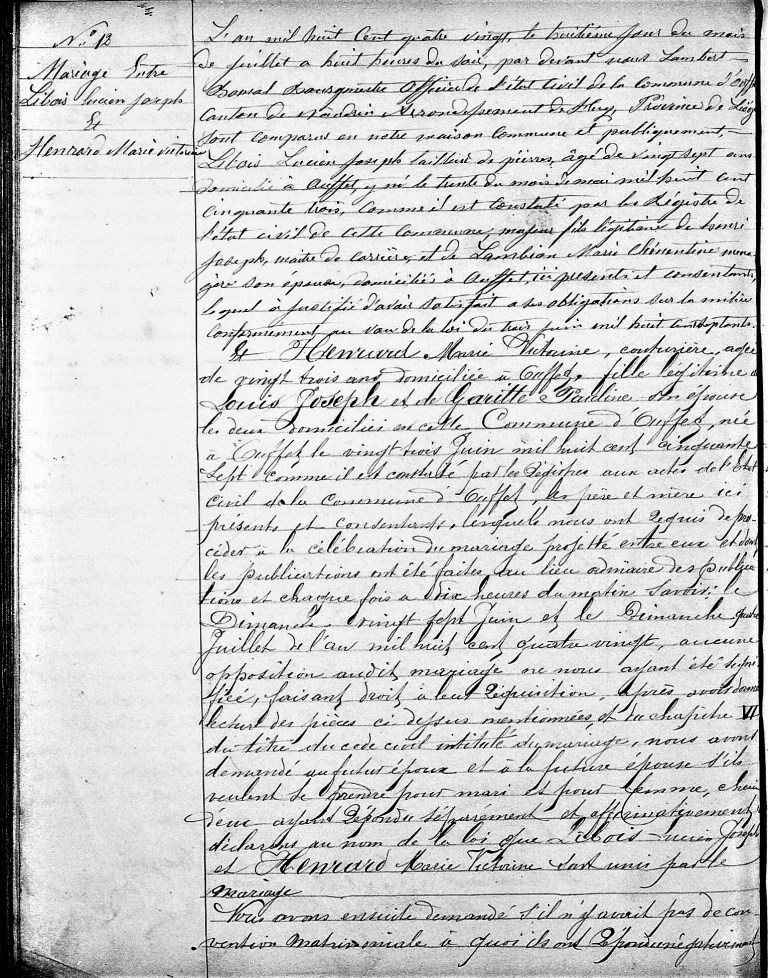 N.º 13
Mariage Entre
Libois Lucien Joseph
Et
Henrard Marie Victorine
L'an mil huit cent quatre vingt, le huitième jour du mois
de juillet a huit heures du soir, par devant nous Lambert
Officier de l'état Civil de la Commune d'Ouffet
Canton de Nandrin Arrondissement de Huy, Province de Liége
sont comparus en notre maison Commune et publiquement,
Libois Lucien Joseph tailleur de pierres, âgé de vingt sept ans
domicilié à Ouffet, y né le trente du mois de mai mil huit cent
cinquante trois, comme il est constaté par les Registre de
l'état civil de cette commune, majeur fils légitime de henri
Joseph, maitre de carrière, et de Lambion Marie Clémentine mena
gère son epouse, domiciliés à Ouffet, ici présents et consentants,
lequel à justifié d'avoir satisfait a ses obligations sur la milice
conformement au vœu de la loi du trois juin mil huit cent septante.
Et Henrard Marie Victorine, couturière, agée
de vingt trois ans domiciliée à Ouffet, fille légitime de
Louis Joseph et de Garitte Pauline son épouse
les deux domiciliés en cette Commune d'Ouffet, née
à Ouffet le vingt trois Juin mil huit cent cinquante
Sept comme il est constaté par les Régistres aux actes de l'Etat
Civil de la Commune d'Ouffet, les père et mère ici
présents et consentants, lesquels nous ont Requis de pro-
céder a la célébration du mariage projetté entre eux et dont
les publications ont été faites au lieu ordinaire des publica
tions et chaque fois a dix heures du matin Savoir: le
Dimanche vingt sept Juin et le Dimanche quatre
Juillet de l'an mil huit cent quatre vingt, aucune
opposition audit mariage ne nous ayant été signi
fiée, faisant droit à leur Réquisition, après avoir donné
lecture des pièces ci dessus mentionnées et du chapitre VI
du titre du code civil intitulé du mariage, nous avons
demandé au futur époux et à la future épouse s'ils
veulent se prendre pour mari et pour femme, chacun
deux ayant Répondu séparement et affirmativement,
déclarons au nom de la loi que Libois Lucien Joseph
et Henrard Marie Victorine sont unis par le
mariage
Nous avons ensuite demandé s'il n'y avait pas de con
vention Matrimoniale à quoi ils ont Répondu négativement